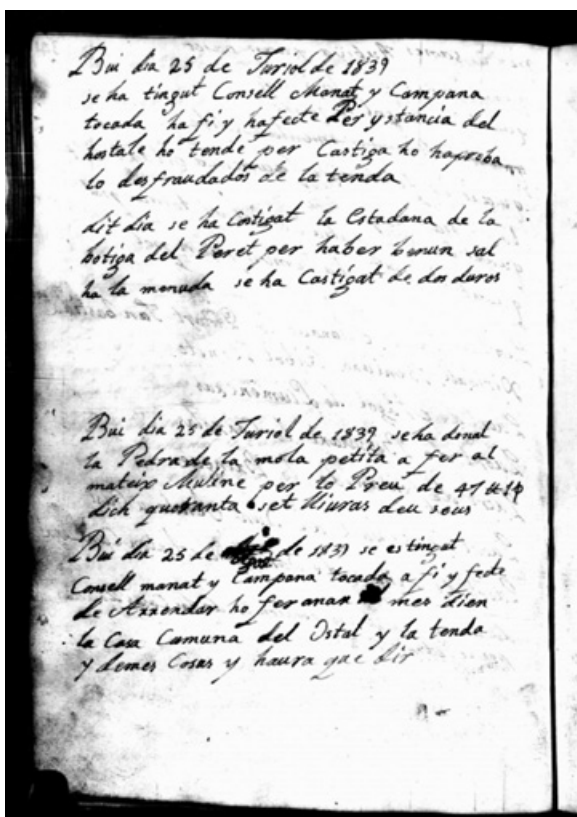 Bui dia 25 de Juriol de 1839
se ha tingut Consell Manat y Campana
tocada ha fi y hafecte Per ystancia del
hostale ho tende per Castiga ho haproba
lo desfraudados de la tenda
dit dia se ha Castigat la Estadana de la
botiga del Peret per haber benun sal
ha la menuda se ha Castigat de dos duros
Bui dia 25 de Juriol de 1839 se ha donat
la Pedra de la mola petita a fer al
mateix Muline per lo Preu de 47 ll
dich quoranta set lliuras deu sous
Bui dia 25 de de 1839 se es tingut
Consell manat y Campana tocada a fi y fecte
de Arrendar ho fer anar mes dien
la Casa Camuna del Ostal y la tenda
y demes Cosas y haura que dir